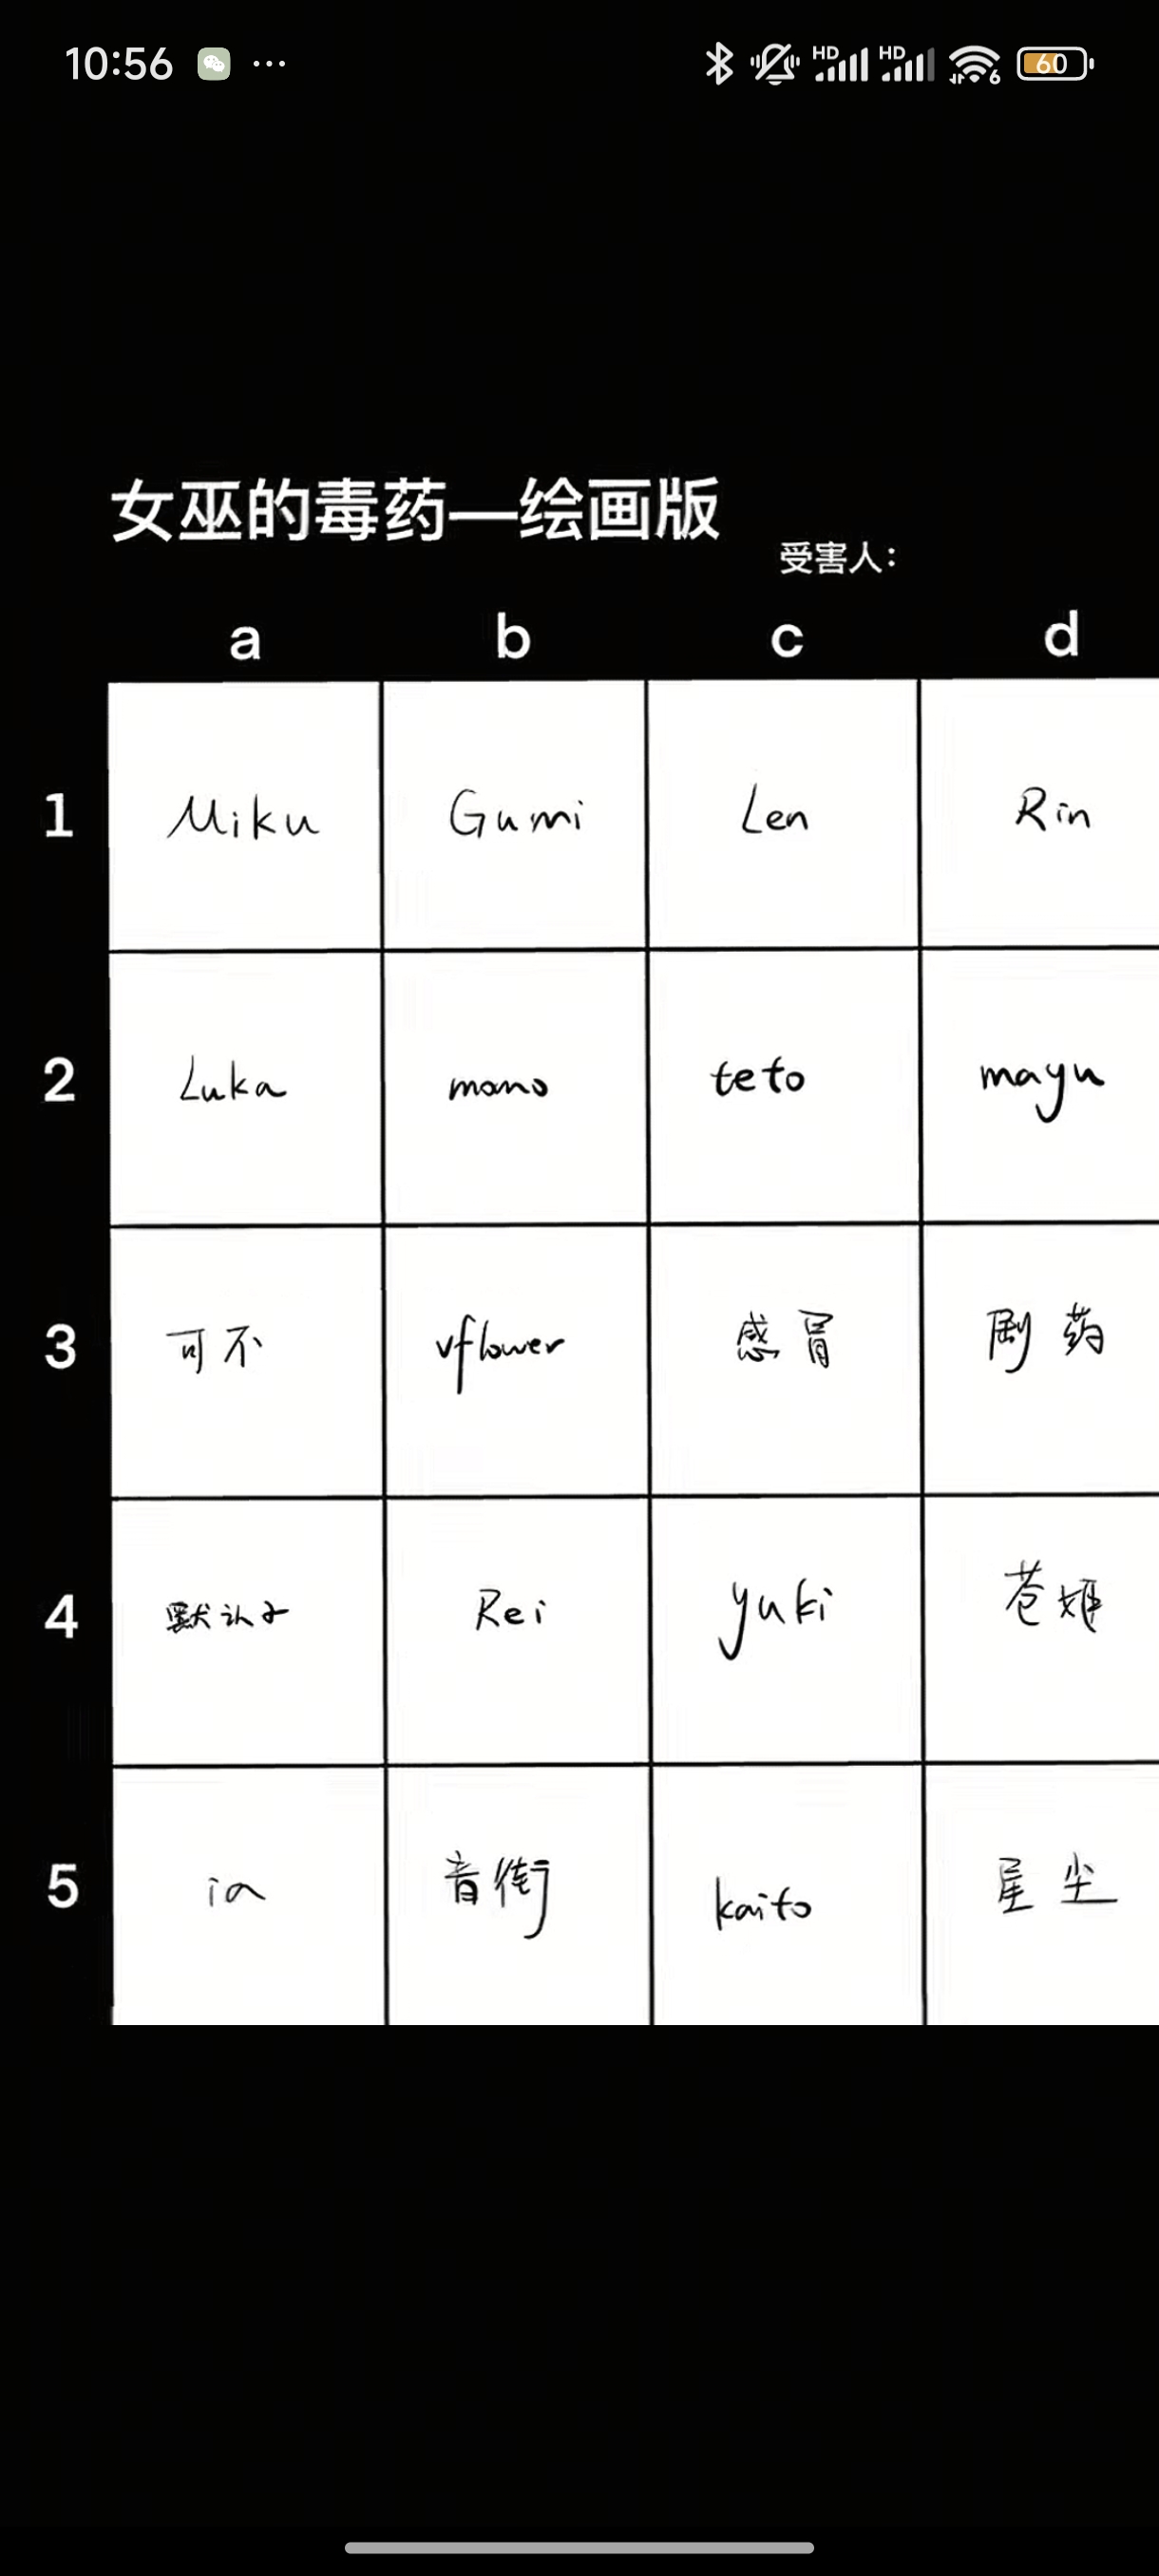 10:56 ... HD HD 6 60
女巫的毒药—绘画版
受害人:
a b c d
1 Miku Gumi Len Rin
2 Luka momo teto mayu
3 可不 vflower 感冒 剧药
4 默认子 Rei yuki 苍姬
5 ia 音街 kaito 星尘